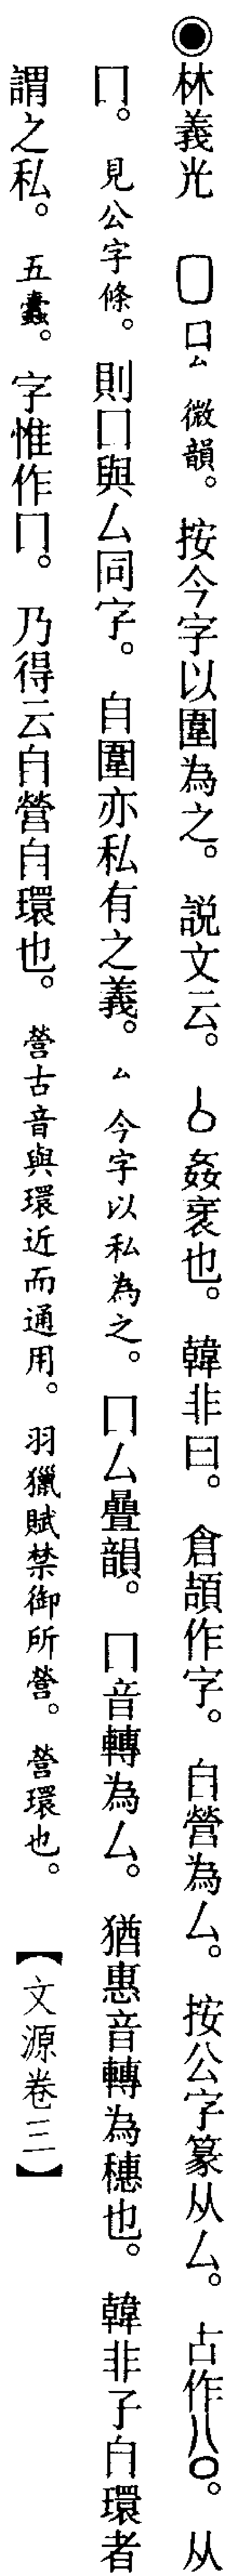 ◉林義光　囗囗厶微韻。按今字以圍為之。説文云。厶姦衺也。韓非曰。倉頡作字。自營為厶。按公字篆从厶。古作公。从
囗。見公字條。則囗與厶同字。自圍亦私有之義。厶今字以私為之。囗厶疊韻。囗音轉為厶。猶惠音轉為穗也。韓非子自環者
謂之私。五蠹。字惟作囗。乃得云自營自環也。營古音與環近而通用。羽獵賦禁御所營。營環也。【文源卷三】